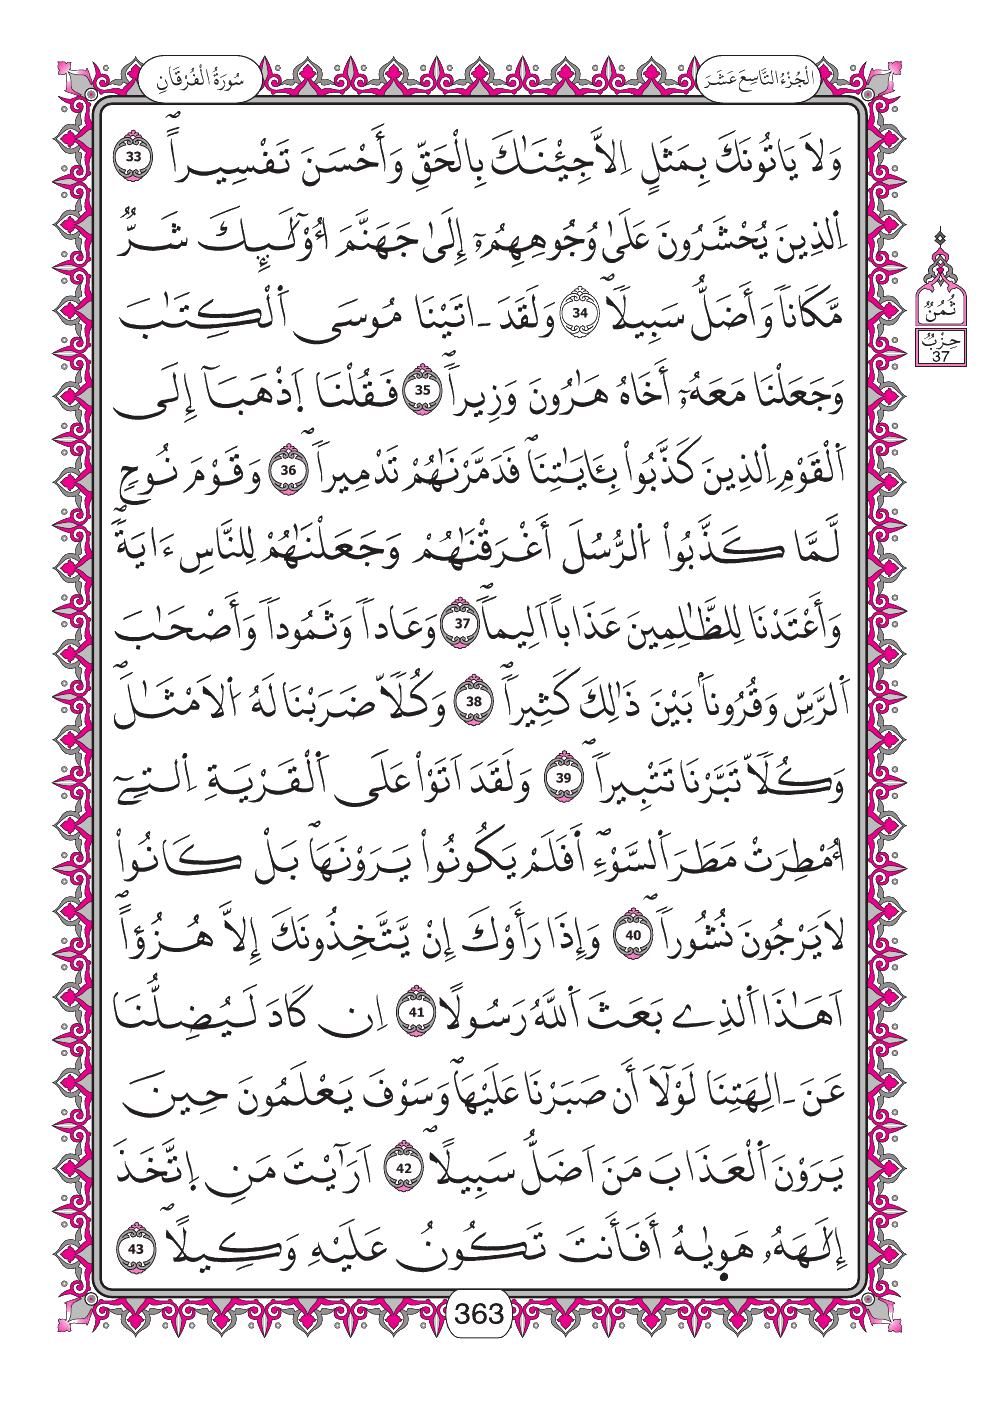 سُورَةُ الْفُرْقَانِ
الْجُزْءُ التَّاسِعَ عَشَرَ
وَلَا يَاتُونَكَ بِمَثَلٍ اِلَّا جِئْنَٰكَ بِالْحَقِّ وَأَحْسَنَ تَفْسِيراًۖ 33
اَ۬لذِينَ يُحْشَرُونَ عَلَىٰ وُجُوهِهِمُۥٓ إِلَىٰ جَهَنَّمَ أُوْلَٰٓئِكَ شَرٌّ
مَّكَاناٗ وَأَضَلُّ سَبِيلاٗۖ 34 وَلَقَدَ اٰتَيْنَا مُوسَى اَ۬لْكِتَٰبَ
وَجَعَلْنَا مَعَهُۥٓ أَخَاهُ هَٰرُونَ وَزِيراٗۖ 35 فَقُلْنَا اَ۪ذْهَبَآ إِلَى
اَ۬لْقَوْمِ اِ۬لذِينَ كَذَّبُواْ بِـَٔايَٰتِنَاۖ فَدَمَّرْنَٰهُمْ تَدْمِيراٗۖ 36 وَقَوْمَ نُوحٍ
لَّمَّا كَذَّبُواْ اُ۬لرُّسُلَ أَغْرَقْنَٰهُمْ وَجَعَلْنَٰهُمْ لِلنَّاسِ ءَايَةٗۖ
وَأَعْتَدْنَا لِلظَّٰلِمِينَ عَذَاباً اَلِيماٗۖ 37 وَعَاداٗ وَثَمُوداٗ وَأَصْحَٰبَ
اَ۬لرَّسِّ وَقُرُوناَۢ بَيْنَ ذَٰلِكَ كَثِيراٗۖ 38 وَكُلّاٗ ضَرَبْنَا لَهُ اُ۬لَامْثَٰلَۖ
وَكُلّاٗ تَبَّرْنَا تَتْبِيراٗۖ 39 وَلَقَدَ اَتَوْاْ عَلَى اَ۬لْقَرْيَةِ اِ۬لتِےٓ
أُمْطِرَتْ مَطَرَ اَ۬لسَّوْءِۖ أَفَلَمْ يَكُونُواْ يَرَوْنَهَاۖ بَلْ كَانُواْ
لَا يَرْجُونَ نُشُوراٗۖ 40 وَإِذَا رَأَوْكَ إِنْ يَّتَّخِذُونَكَ إِلَّا هُزُؤاًۖ
اَهَٰذَا اَ۬لذِے بَعَثَ اَ۬للَّهُ رَسُولاً 41 اِن كَادَ لَيُضِلُّنَا
عَنَ اٰلِهَتِنَا لَوْلَآ أَن صَبَرْنَا عَلَيْهَاۖ وَسَوْفَ يَعْلَمُونَ حِينَ
يَرَوْنَ اَ۬لْعَذَابَ مَنَ اَضَلُّ سَبِيلاًۖ 42 اَرَٰٓيْتَ مَنِ اِ۪تَّخَذَ
إِلَٰهَهُۥ هَوٜىٰهُ أَفَأَنتَ تَكُونُ عَلَيْهِ وَكِيلاًۖ 43
ثُمُنٌ
حِزْبٌ
37
363